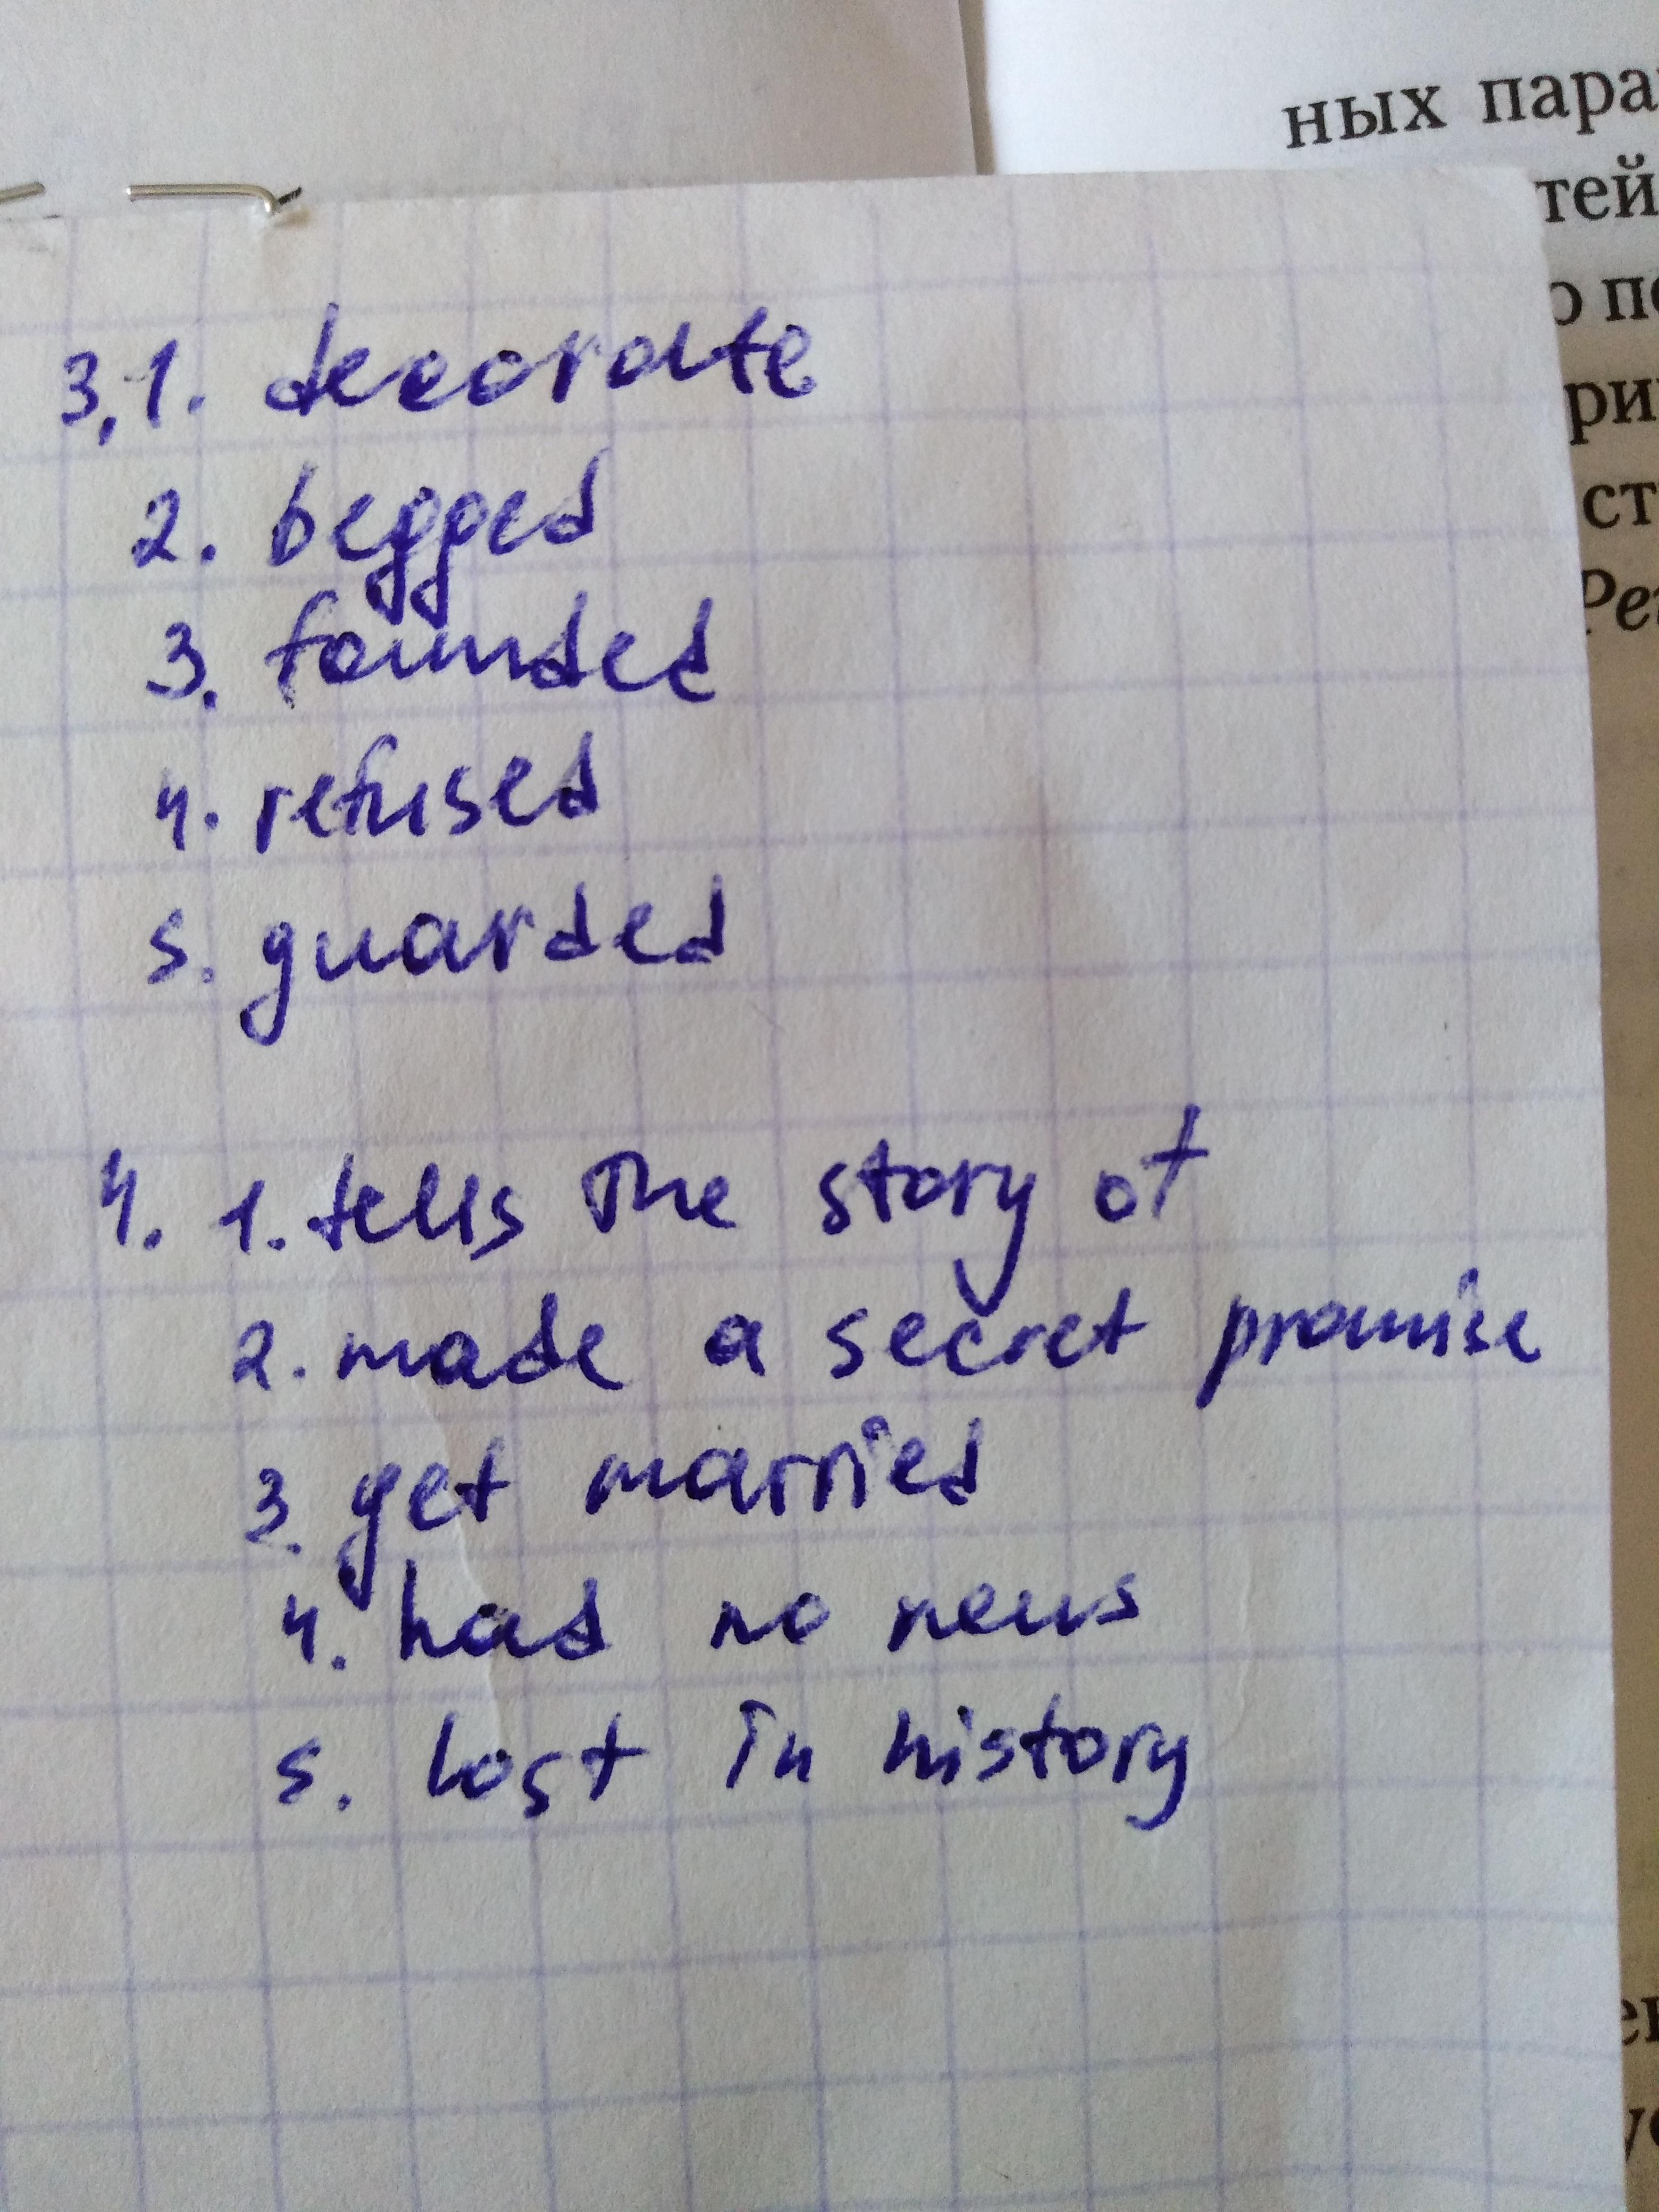 ных пара
тей
о по
ри
ст
Рег
3,1. decorate
2. begged
3. founded
4. refused
5. guarded
4. 1. tells the story of
2. made a secret promise
3. get married
4. had no news
5. lost in history